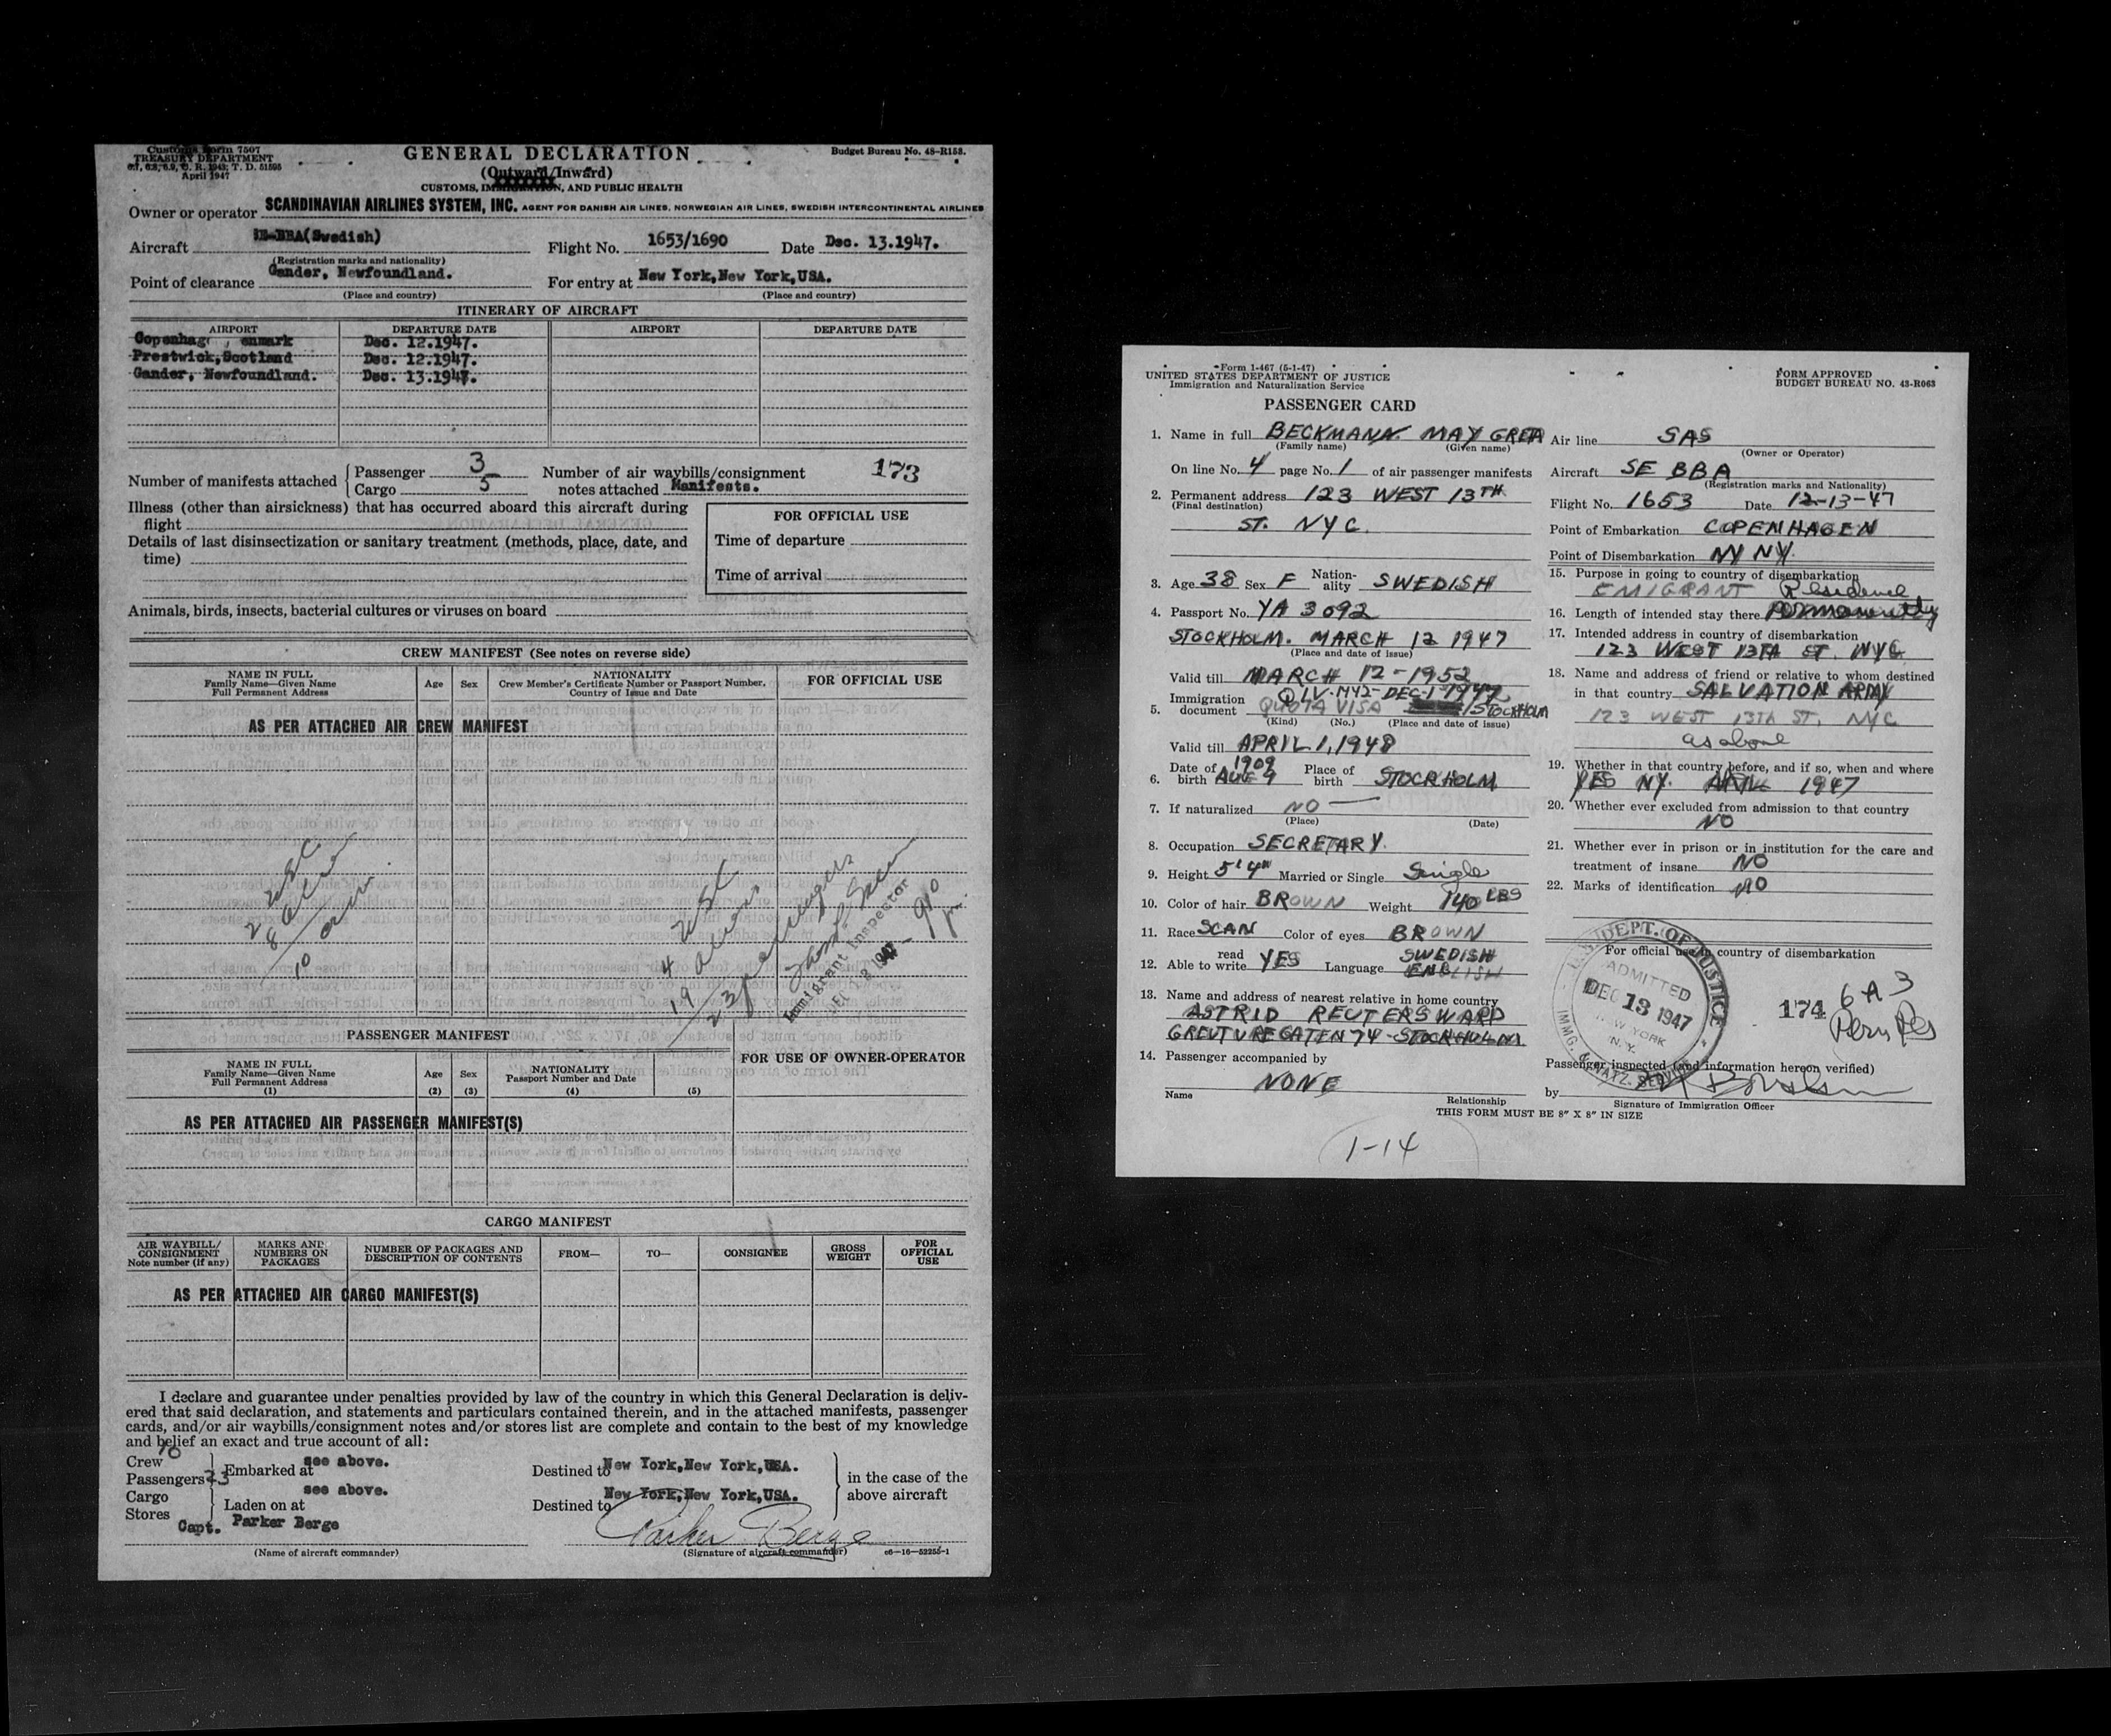 Customs Form 7507
TREASURY DEPARTMENT
April 1947
GENERAL DECLARATION
(Outward/Inward)
CUSTOMS, IMMIGRATION, AND PUBLIC HEALTH
Budget Bureau No. 48-R153.
Owner or operator SCANDINAVIAN AIRLINES SYSTEM, INC. AGENT FOR DANISH AIR LINES, NORWEGIAN AIR LINES, SWEDISH INTERCONTINENTAL AIRLINES
Aircraft SE-BBA(Swedish) Flight No. 1653/1690 Date Dec. 13.1947.
(Registration marks and nationality)
Point of clearance Gander, Newfoundland. For entry at New York,New York,USA.
(Place and country) (Place and country)
ITINERARY OF AIRCRAFT
AIRPORT DEPARTURE DATE AIRPORT DEPARTURE DATE
Copenhag , enmark Dec. 12.1947.
Prestwick,Scotland Dec. 12.1947.
Gander, Newfoundland. Dec. 13.1947.
Number of manifests attached Passenger 3 Number of air waybills/consignment 173
Cargo 5 notes attached Manifests.
Illness (other than airsickness) that has occurred aboard this aircraft during
flight
Details of last disinsectization or sanitary treatment (methods, place, date, and
time)
FOR OFFICIAL USE
Time of departure
Time of arrival
Animals, birds, insects, bacterial cultures or viruses on board
CREW MANIFEST (See notes on reverse side)
NAME IN FULL
Family Name—Given Name
Full Permanent Address
Age Sex
NATIONALITY
Crew Member's Certificate Number or Passport Number,
Country of Issue and Date
FOR OFFICIAL USE
AS PER ATTACHED AIR CREW MANIFEST
2 USC
8 alien
10
4 USC
19 aliens
23 passengers
Immigrant Inspector
DEC 13 1947
PASSENGER MANIFEST
NAME IN FULL
Family Name—Given Name
Full Permanent Address
(1)
Age
(2)
Sex
(3)
NATIONALITY
Passport Number and Date
(4)
(5)
FOR USE OF OWNER-OPERATOR
AS PER ATTACHED AIR PASSENGER MANIFEST(S)
CARGO MANIFEST
AIR WAYBILL/
CONSIGNMENT
Note number (if any)
MARKS AND
NUMBERS ON
PACKAGES
NUMBER OF PACKAGES AND
DESCRIPTION OF CONTENTS
FROM— TO— CONSIGNEE
GROSS
WEIGHT
FOR
OFFICIAL
USE
AS PER ATTACHED AIR CARGO MANIFEST(S)
I declare and guarantee under penalties provided by law of the country in which this General Declaration is deliv-
ered that said declaration, and statements and particulars contained therein, and in the attached manifests, passenger
cards, and/or air waybills/consignment notes and/or stores list are complete and contain to the best of my knowledge
and belief an exact and true account of all:
Crew 10
Passengers 23 Embarked at see above. Destined to New York,New York,USA. in the case of the
Cargo see above. New York,New York,USA. above aircraft
Stores Laden on at Destined to
Capt. Parker Berge Parker Berge
(Name of aircraft commander) (Signature of aircraft commander) c6—16—52255-1
Form I-467 (5-1-47)
UNITED STATES DEPARTMENT OF JUSTICE
Immigration and Naturalization Service
FORM APPROVED
BUDGET BUREAU NO. 43-R063
PASSENGER CARD
1. Name in full BECKMAN MAY GRETA
(Family name) (Given name)
On line No. 4 page No. 1 of air passenger manifests
2. Permanent address 123 WEST 13TH
(Final destination)
ST. NYC.
3. Age 38 Sex F Nation-
ality SWEDISH
4. Passport No. YA 3092
STOCKHOLM. MARCH 12 1947
(Place and date of issue)
Valid till MARCH 12-1952
Q.I.V.-1142-DEC-1-1947
5. Immigration
document QUOTA VISA /STOCKHOLM
(Kind) (No.) (Place and date of issue)
Valid till APRIL 1, 1948
6. Date of birth 1909 AUG 9 Place of birth STOCKHOLM
7. If naturalized NO
(Place) (Date)
8. Occupation SECRETARY.
9. Height 5' 4" Married or Single Single
10. Color of hair BROWN Weight 140 LBS
11. Race SCAN Color of eyes BROWN
12. Able to read write YES Language SWEDISH ENGLISH
13. Name and address of nearest relative in home country
ASTRID REUTERSWARD
GREVTUREGATEN 74-STOCKHOLM
14. Passenger accompanied by
NONE
Name Relationship
THIS FORM MUST BE 8" X 8" IN SIZE
1-14
Air line SAS
(Owner or Operator)
Aircraft SE BBA
(Registration marks and Nationality)
Flight No. 1653 Date 12-13-47
Point of Embarkation COPENHAGEN
Point of Disembarkation NY NY.
15. Purpose in going to country of disembarkation
EMIGRANT Residence
16. Length of intended stay there permanently
17. Intended address in country of disembarkation
123 WEST 13TH ST. NYC
18. Name and address of friend or relative to whom destined
in that country SALVATION ARMY
123 WEST 13TH ST. NYC
as above
19. Whether in that country before, and if so, when and where
YES NY. APRIL 1947
20. Whether ever excluded from admission to that country
NO
21. Whether ever in prison or in institution for the care and
treatment of insane NO
22. Marks of identification NO
For official use in country of disembarkation
U.S. DEPT. OF JUSTICE
ADMITTED
DEC 13 1947
NEW YORK
N.Y.
IMMG. & NATZ. SERVICE
174 6A3
Perm Res
Passenger inspected (and information hereon verified)
by
Signature of Immigration Officer